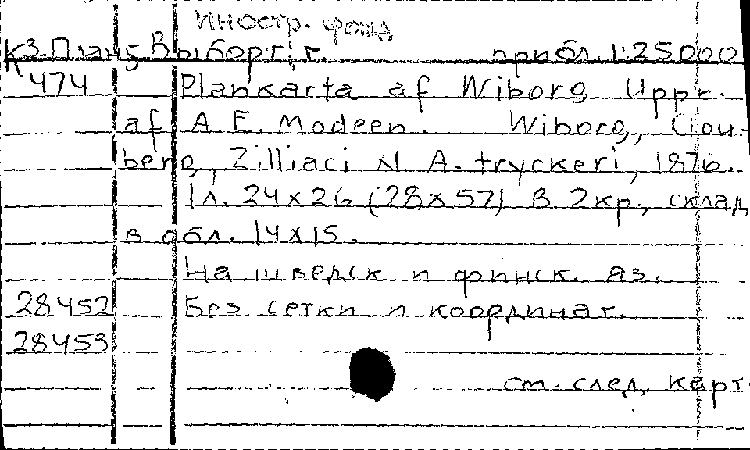 Иностр. фонд
К3. План, Выборг, г. прибл. 1:25000
474 Plankarta af Wiborg Uppr.
af A. F. Modeen. Wiborg, Clou-
berg, Zilliaci N A. tryckeri, 1876.
1л. 24x26 (28x57) в 2кр., склад
в обл. 14x15.
На шведск и финск. яз.
28452 Без сетки и координат.
28453
см. след, карт